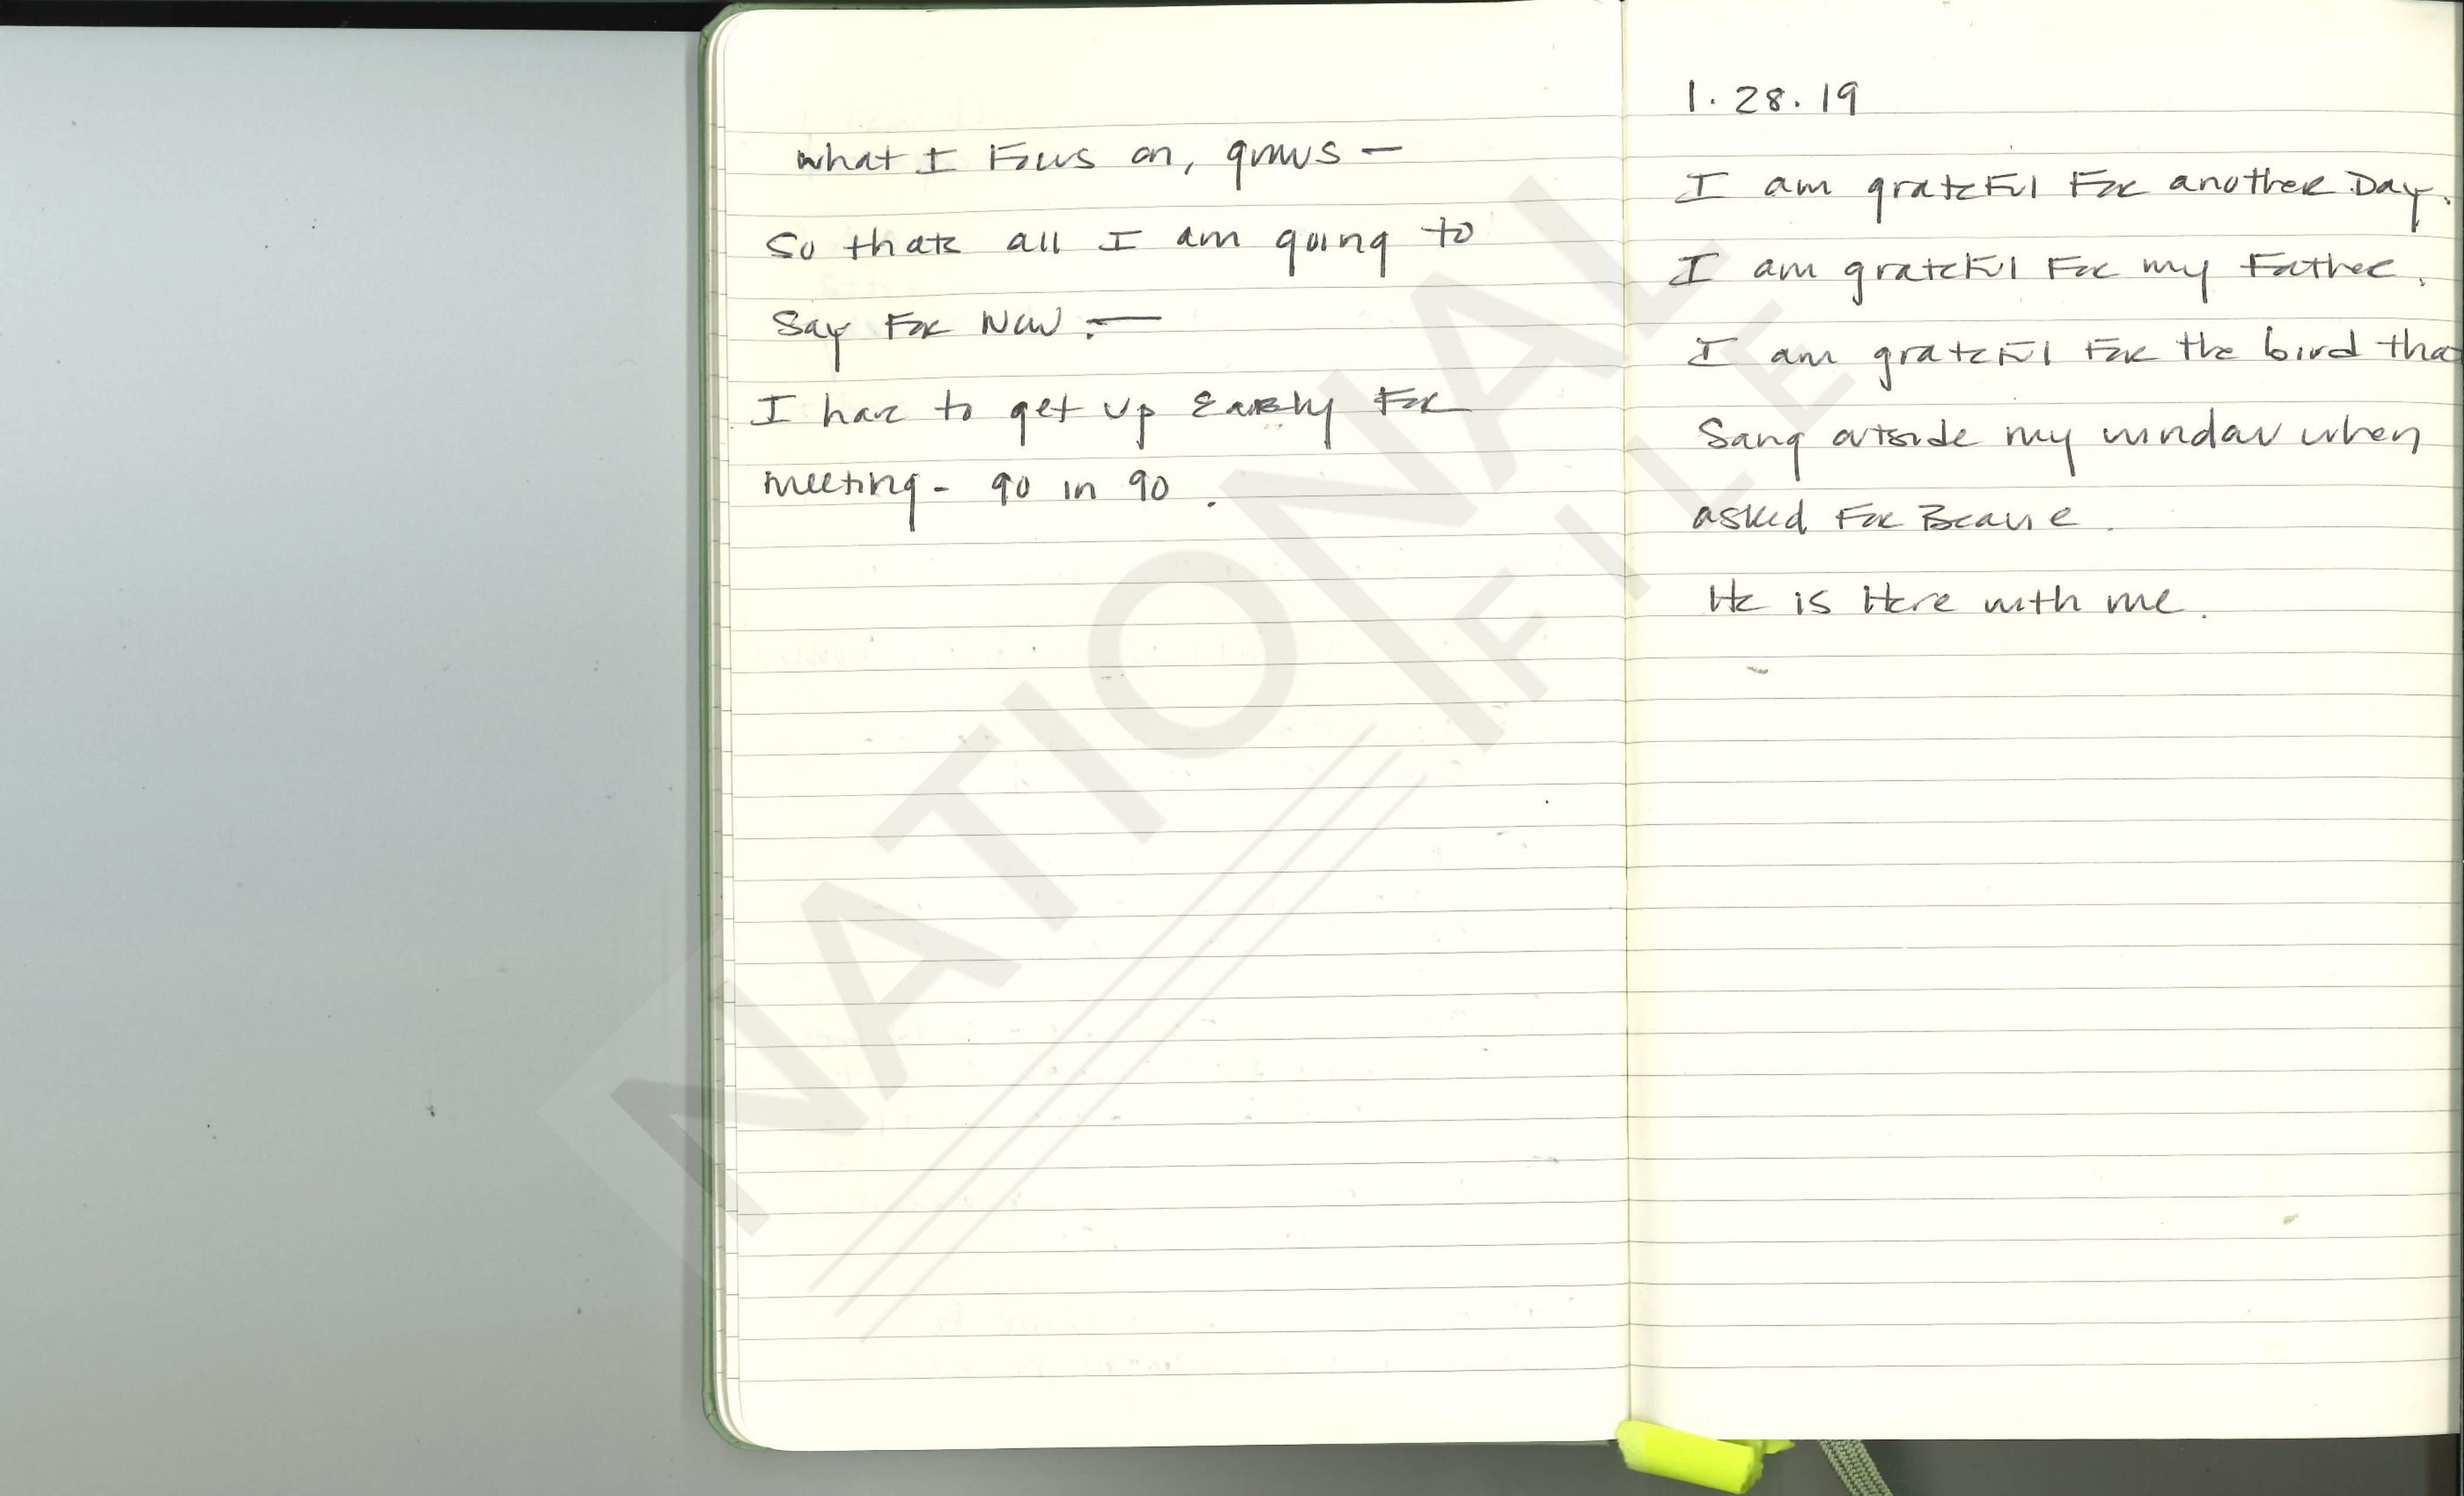 what I Focus on, grows —
So thats all I am going to
Say For Now. —
I have to get up Early For
meeting - 90 in 90 .
1. 28. 19
I am grateful For another Day.
I am grateful For my Father.
I am grateful For the bird tha
Sang outside my window when
asked For
He is Here with me.
NATIONAL
FILE